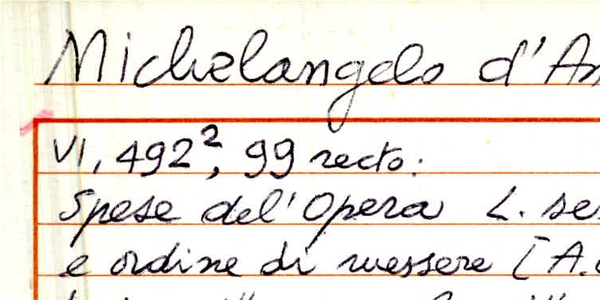 Michelangelo d'An
VI, 492², 99 recto:
Spese del'Opera L. se
e ordine di messere [A.